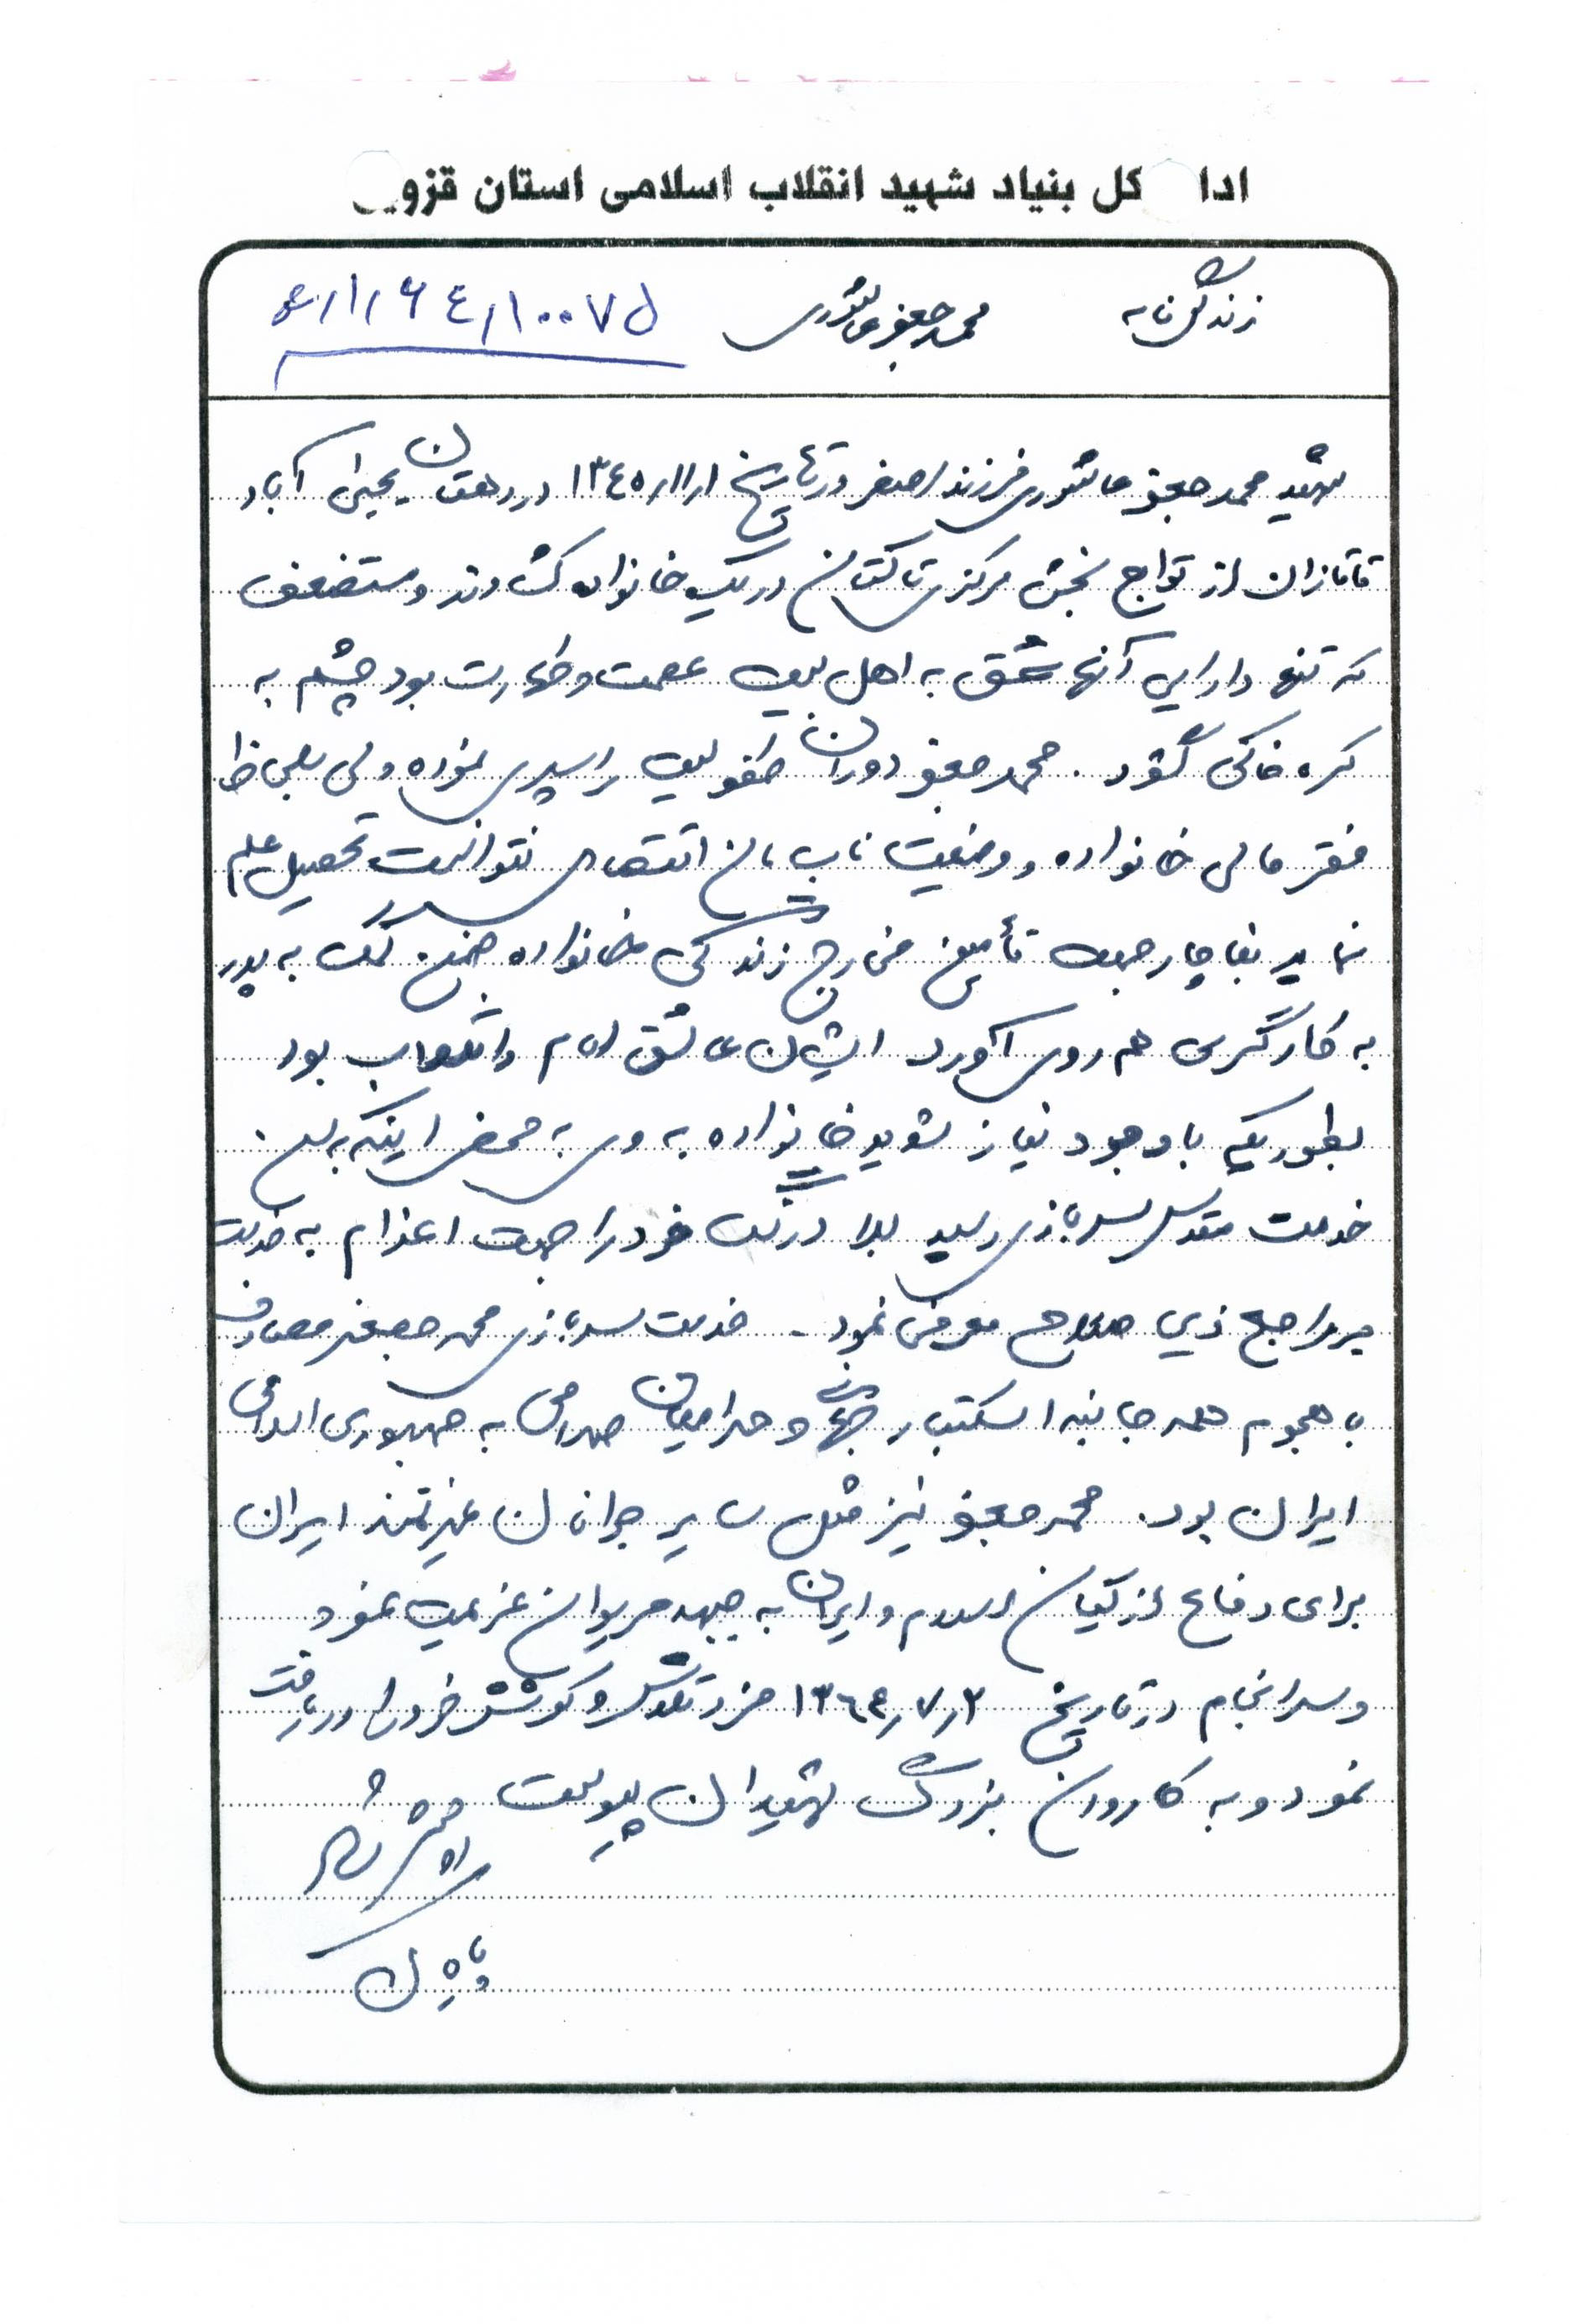 ادا کل بنیاد شهید انقلاب اسلامی استان قزوین
زندگی نامه محمد جعفر عاشوری
شهید محمد جعفر عاشوری فرزند اصغر در تاریخ ۱۳۴۵/۱۱/۱ در دهستان یحیی آباد
قاقازان از توابع بخش مرکزی تاکستان در یک خانواده کشاورز و مستضعف
که تنها دارایی آنها عشق به اهل بیت عصمت و طهارت بود چشم به
کره خاکی گشود . محمد جعفر دوران طفولیت را سپری نموده ولی بلحاظ
فقر مالی خانواده و وضعیت نابسامان اقتصادی نتوانست تحصیل علم
نماید بناچار جهت تأمین مخارج زندگی خانواده ضمن کمک به پدر
به کارگری هم روی آورد ایشان عاشق امام و انقلاب بود
بطوریکه با وجود نیاز شدید خانواده به وی به محض اینکه به سن
خدمت مقدس سربازی رسید بلا درنگ خود را جهت اعزام به خدمت
به مراجع ذی صلاح معرفی نمود - خدمت سربازی محمد جعفر مصادف
با هجوم همه جانبه استکبار جهانی و حرامیان صدامی به جمهوری اسلامی
ایران بود . محمد جعفر نیز مثل سایر جوانان غیرتمند ایران
برای دفاع از کیان اسلام و ایران به جبهه مریوان عزیمت نمود
و سرانجام در تاریخ ۱۳۶۴/۷/۲ مزد تلاش و کوشش خود را دریافت
نمود و به کاروان بزرگ شهیدان پیوست
راهش